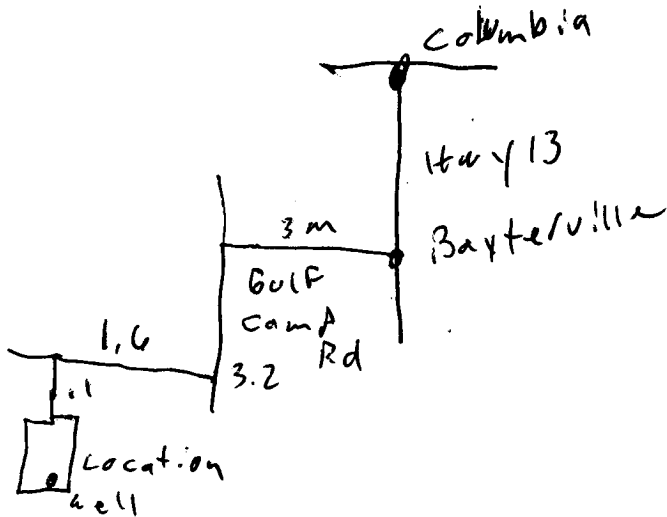 Columbia
Hwy 13
Baxterville
3 m
Gulf
Camp
Rd
3.2
1.6
.1
Location
well